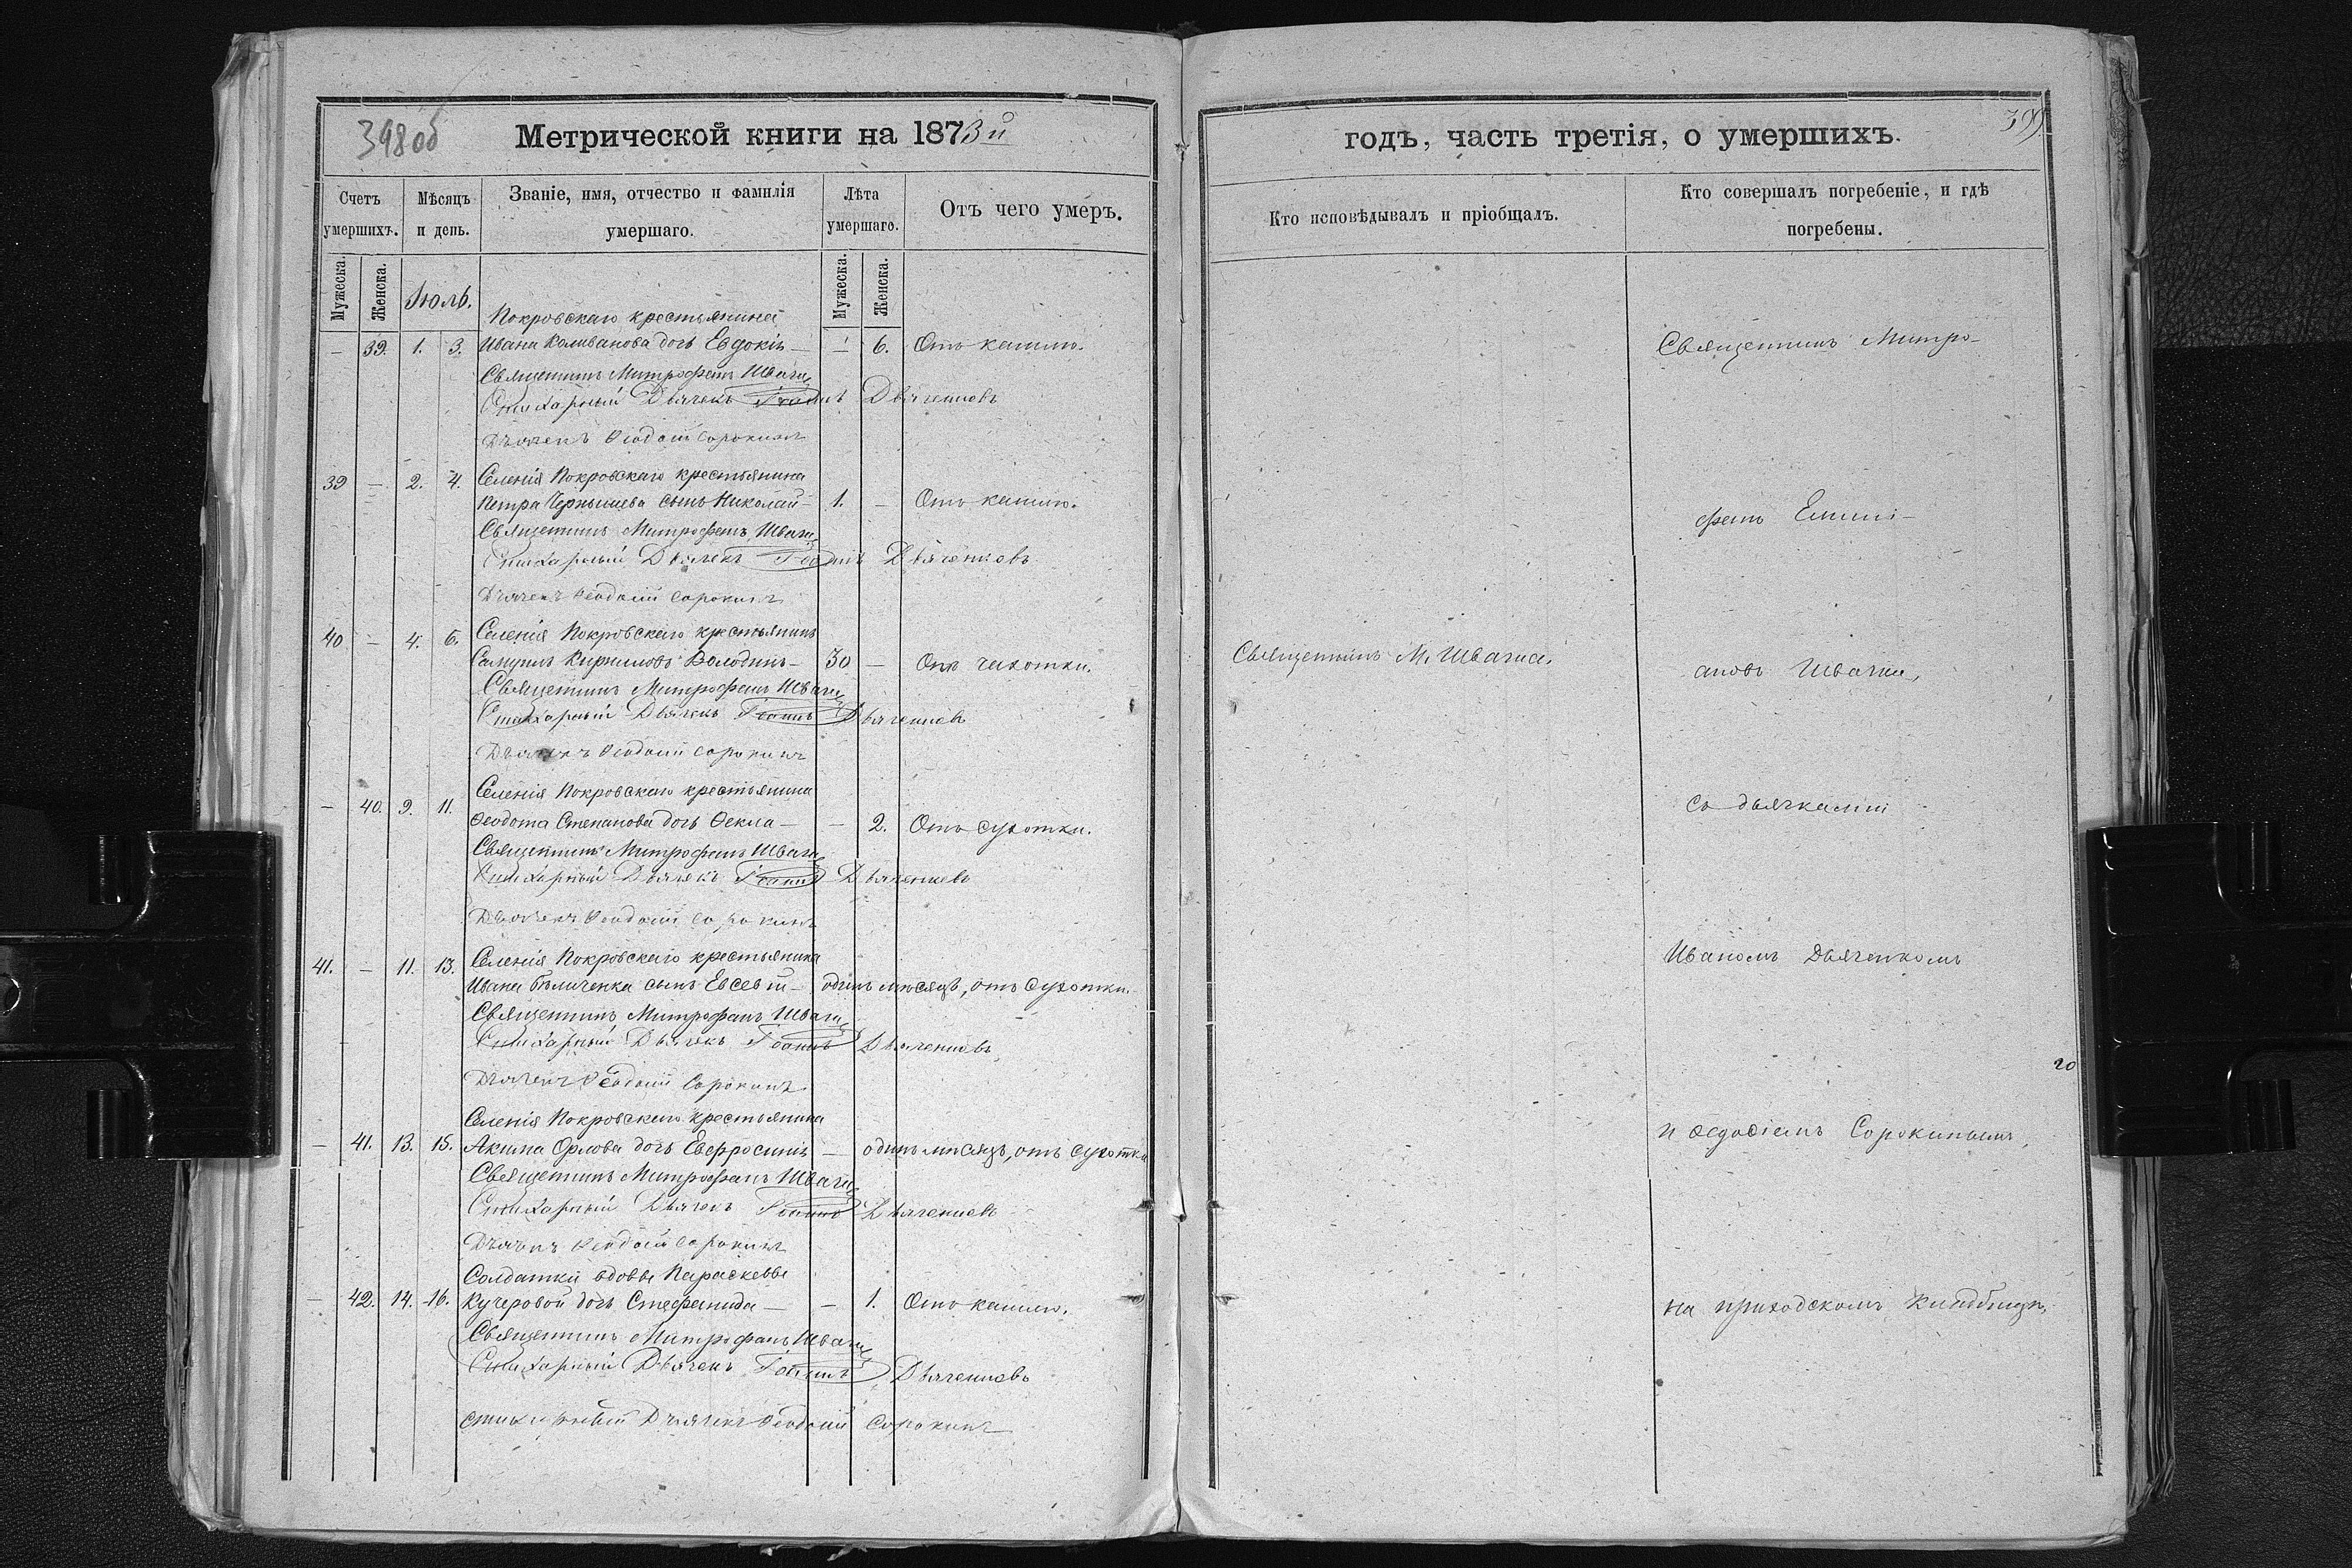 398 об
Метрической книги на 1873й
Счетъ умершихъ.
Мѣсяцъ и день.
Званіе, имя, отчество и фамилія умершаго.
Лѣта умершаго.
Отъ чего умеръ.
Мужеска.
Женска.
Іюль.
Мужеска.
Женска.
Покровскаго крестьянина
— 39. 1. 3. Ивана Коливанова дочь Евдокія — — 6. Отъ кашлю.
Священникъ Митрофанъ Швачка
Стихарный Дьячекъ Іоаннъ Дьяченковъ
Дьячекъ Ѳеодосій Сорокинъ
Селенія Покровскаго крестьянина
39 — 2. 4. Петра Чернышева сынъ Николай — 1. — Отъ кашлю.
Священникъ Митрофанъ Швачка
Стихарный Дьячекъ Іоаннъ Дьяченковъ
Дьячекъ Ѳеодосій Сорокинъ
Селенія Покровскаго крестьянинъ
40 — 4. 6. Самуилъ Кирилловъ Володинъ — 30 — Отъ чахотки.
Священникъ Митрофанъ Швачка
Стихарный Дьячекъ Іоаннъ Дьяченковъ
Дьячекъ Ѳеодосій Сорокинъ
Селенія Покровскаго крестьянина
— 40. 9. 11. Ѳеодота Степанова дочь Ѳекла — — 2. Отъ сухотки.
Священникъ Митрофанъ Швачка
Стихарный Дьячекъ Іоаннъ Дьяченковъ
Дьячекъ Ѳеодосій Сорокинъ
Селенія Покровскаго крестьянина
41. — 11. 13. Ивана Бѣличенка сынъ Евсевій — одинъ мѣсяцъ, отъ сухотки.
Священникъ Митрофанъ Швачка
Стихарный Дьячекъ Іоаннъ Дьяченковъ
Дьячекъ Ѳеодосій Сорокинъ
Селенія Покровскаго крестьянина
— 41. 13. 15. Акима Орлова дочь Евфросинія — одинъ мѣсяцъ, отъ сухотки
Священникъ Митрофанъ Швачка
Стихарный Дьячекъ Іоаннъ Дьяченковъ
Дьячекъ Ѳеодосій Сорокинъ
Солдатки вдовы Параскевы
— 42. 14. 16. Кучеровой дочь Стефанида — — 1. Отъ кашлю.
Священникъ Митрофанъ Швачка
Стихарный Дьячекъ Іоаннъ Дьяченковъ
Стихарный Дьячекъ Ѳеодосій Сорокинъ
годъ, часть третія, о умершихъ.
399
Кто исповѣдывалъ и пріобщалъ.
Кто совершалъ погребеніе, и гдѣ погребены.
Священникъ М. Швачка.
Священникъ Митро-
фанъ Епифа-
новъ Швачка,
со дьячками
Иваномъ Дьяченкомъ
20
и Ѳедосіемъ Сорокинымъ,
на приходскомъ кладбищѣ.